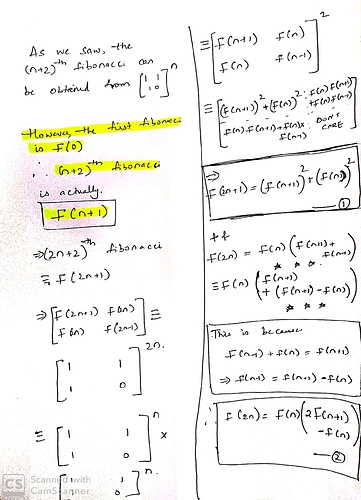 As we saw, the
(n+2)th fibonacci can
be obtained from [1 1
1 0]^n
However, the first fibonacci
is F(0)
∴ (n+2)th fibonacci
is actually.
F(n+1)
⇒ (2n+2)th fibonacci
≡ F(2n+1)
⇒ [F(2n+1) F(2n)
F(2n) F(2n-1)] ≡
[1 1
1 0]^2n.
≡ [1 1
1 0]^n x
[1 1
1 0]^n.
≡ [F(n+1) F(n)
F(n) F(n-1)]^2
≡ [(F(n+1))^2 + (F(n))^2 : F(n)F(n+1)
+ F(n)F(n-1)
F(n).F(n+1) + F(n)x : DON'T
F(n-1) CARE]
⇒
F(2n+1) = (F(n+1))^2 + (F(n))^2
— ①
F(2n) = F(n) (F(n+1) +
F(n-1))
* * *
≡ F(n) (F(n+1)
+ (F(n+1) - F(n))
* * *
This is because
F(n-1) + F(n) = F(n+1)
⇒ F(n-1) = F(n+1) - F(n)
∴ F(2n) = F(n) (2F(n+1)
- F(n))
— ②
CS Scanned with
CamScanner